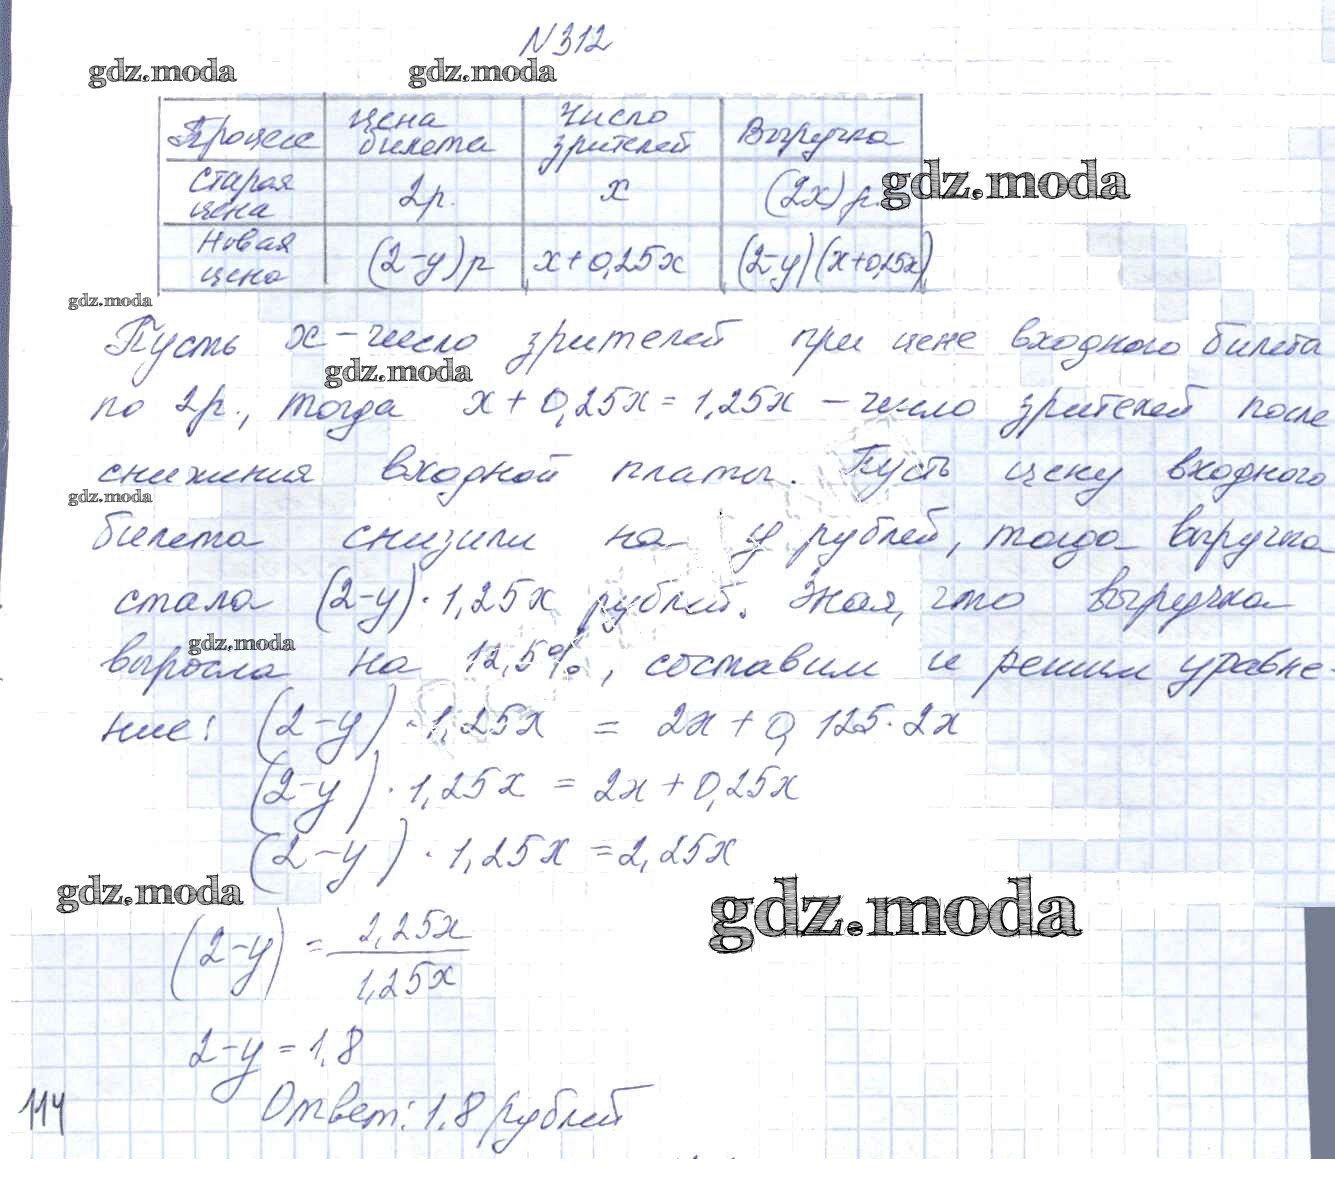 N 312
gdz.moda gdz.moda
Процесс цена билета Число зрителей Выручка
старая цена 2р. x (2x) р.
gdz.moda
Новая цена (2-y) р x+0,25x (2-y)(x+0,25x)
gdz.moda
Пусть x - число зрителей при цене входного билета
gdz.moda
по 2р., тогда x + 0,25x = 1,25x - число зрителей после
снижения входной платы. Пусть цену входного
gdz.moda
билета снизили на y рублей, тогда выручка
стала (2-y) · 1,25x рублей. Зная, что выручка
gdz.moda
выросла на 12,5%, составим и решим уравне-
ние: (2-y) · 1,25x = 2x + 0,125 · 2x
(2-y) · 1,25x = 2x + 0,25x
(2-y) · 1,25x = 2,25x
gdz.moda gdz.moda
(2-y) = 2,25x / 1,25x
2-y = 1,8
114 Ответ: 1,8 рублей